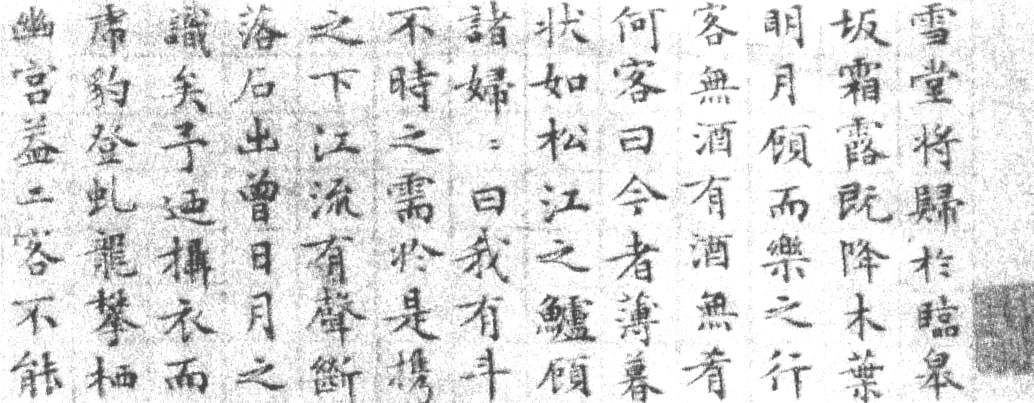 雪堂将歸於臨皋
坂霜露既降木葉
明月顧而樂之行
客無酒有酒無肴
何客曰今者薄暮
状如松江之鱸顧
諸婦〻曰我有斗
不時之需於是携
之下江流有聲斷
落石出曽日月之
識矣予迺攝衣而
虎豹登虬龍攀栖
幽宫葢二客不能